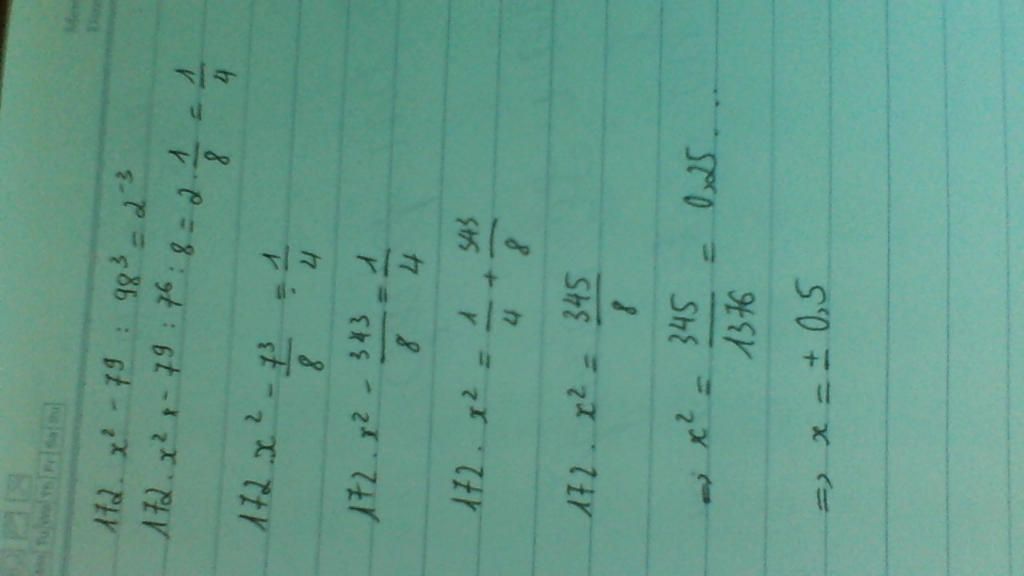 172 . x² - 79 : 98³ = 2⁻³
172 . x² - 79 : 76 : 8 = 2 . 1/8 = 1/4
172 . x² - 73/8 = 1/4
172 . x² - 343/8 = 1/4
172 . x² = 1/4 + 343/8
172 . x² = 345/8
=> x² = 345/1376 = 0,25...
=> x = ± 0,5